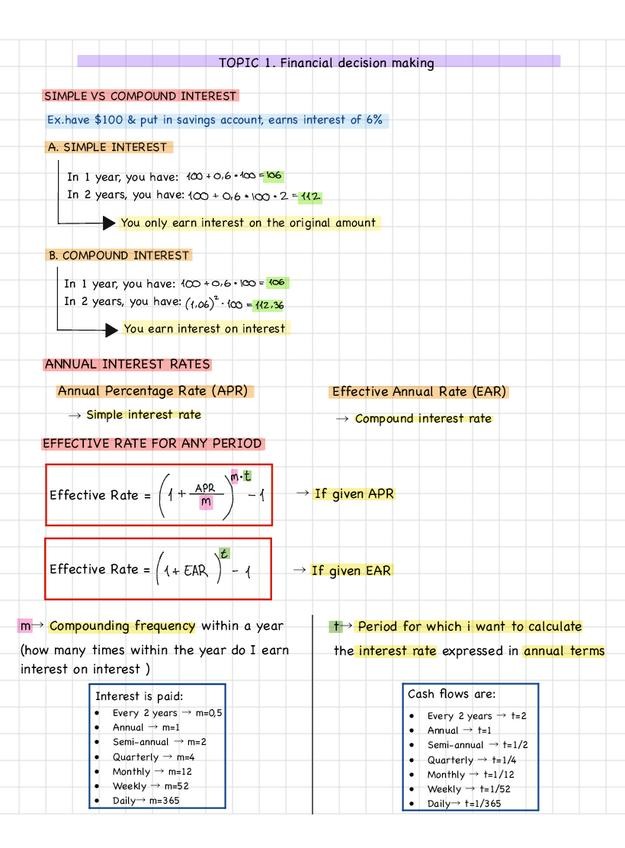 TOPIC 1. Financial decision making
SIMPLE VS COMPOUND INTEREST
Ex.have $100 & put in savings account, earns interest of 6%
A. SIMPLE INTEREST
In 1 year, you have: 100 + 0,6 • 100 = 106
In 2 years, you have: 100 + 0,6 • 100 • 2 = 112
You only earn interest on the original amount
B. COMPOUND INTEREST
In 1 year, you have: 100 + 0,6 • 100 = 106
In 2 years, you have: (1,06)² • 100 = 112,36
You earn interest on interest
ANNUAL INTEREST RATES
Annual Percentage Rate (APR)
→ Simple interest rate
Effective Annual Rate (EAR)
→ Compound interest rate
EFFECTIVE RATE FOR ANY PERIOD
Effective Rate = (1 + APR/m)^m·t - 1 → If given APR
Effective Rate = (1 + EAR)^t - 1 → If given EAR
m→ Compounding frequency within a year
(how many times within the year do I earn
interest on interest )
Interest is paid:
• Every 2 years → m=0,5
• Annual → m=1
• Semi-annual → m=2
• Quarterly → m=4
• Monthly → m=12
• Weekly → m=52
• Daily→ m=365
t→ Period for which i want to calculate
the interest rate expressed in annual terms
Cash flows are:
• Every 2 years → t=2
• Annual → t=1
• Semi-annual → t=1/2
• Quarterly → t=1/4
• Monthly → t=1/12
• Weekly → t=1/52
• Daily→ t=1/365